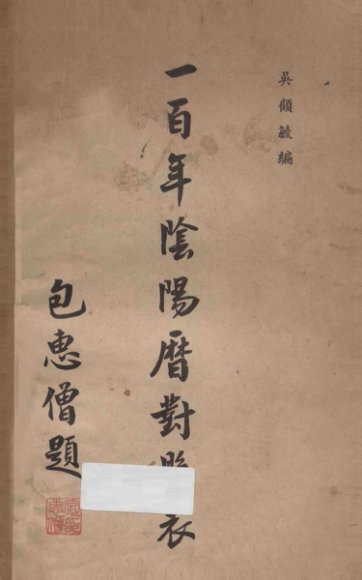 吳毓編
一百年陰陽曆對照表
包惠僧題